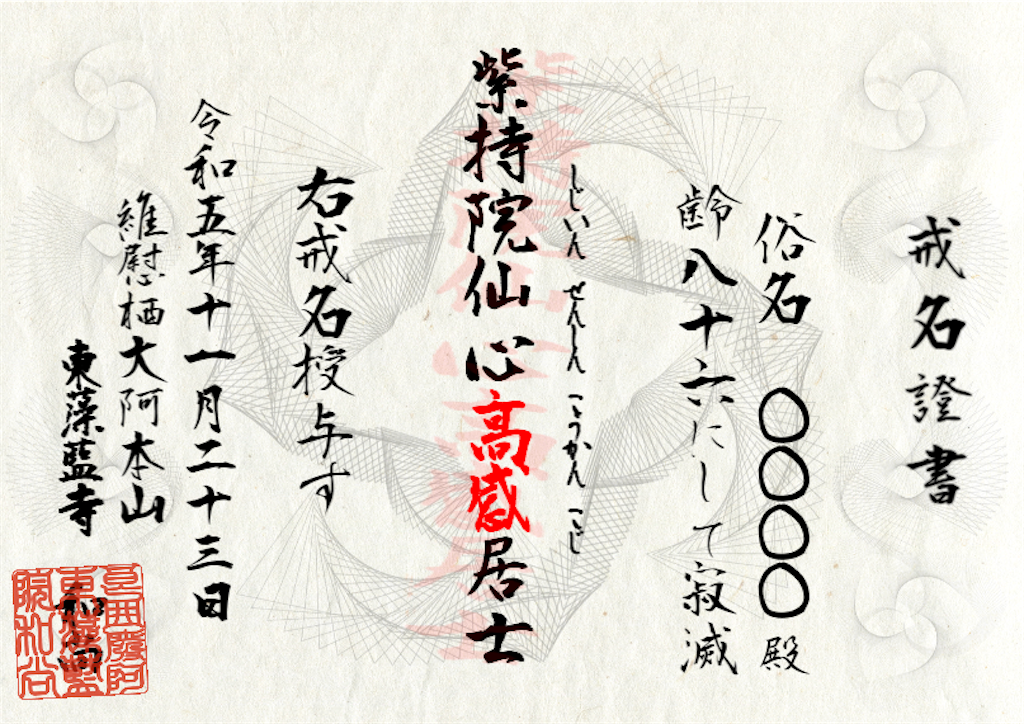 戒名證書
俗名 〇〇〇〇殿
齢八十六にして寂滅
しじいん せんしん こうかん こじ
紫持院仙心高感居士
右戒名授与す
令和五年十一月二十三日
維慰栖大阿本山
東藻藍寺
和尚